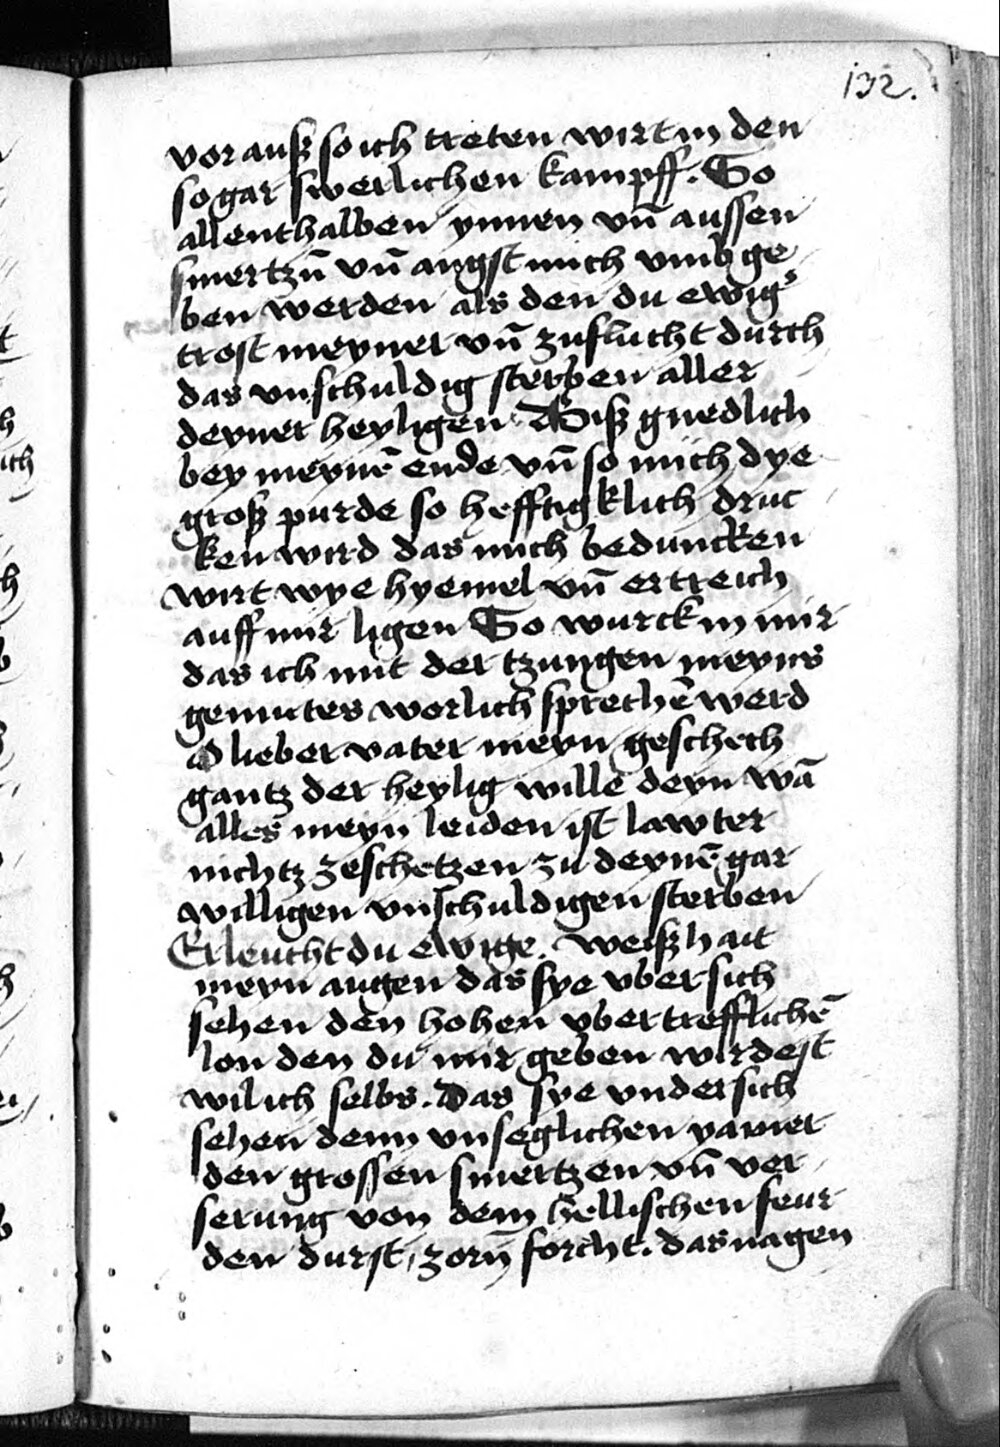 132.
vor auß so ich treten wirt in den
so gar swerlichen kampff. So
allenthalben ynnen vn̄ aussen
smertzn̄ vn̄ angst mich vmb ge
ben werden als den du ewig'
trost meyner vn̄ zuflucht durch
das vnschuldig sterben aller
deyner heyligen Biß gnedlich
bey meynē ende vn̄ so mich dye
groß purde so hefftigklich druc
ken wird das mich beduncken
wirt wye hyemel vn̄ ertreich
auff mir ligen So wurck in mir
das ich mit der tzungen meyns
gemutes worlich sprechē werd
O lieber vater meyn geschech
gantz der heylig wille deyn wā
alles meyn leiden ist lawter
nichtz zeschetzen zu deynē gar
willigen vnschuldigen sterben
Erleucht du ewige. weißhait
meyn augen das sye vber sich
sehen den hohen vbertrefflichē
lon den du mir geben wirdest
wilich selbs. Das sye vndersich
sehen denn vnseglichen yamer
den grossen smertzen vn̄ ver
serung von dem hellischen feur
den durst, zorn̄ forcht. das nagen